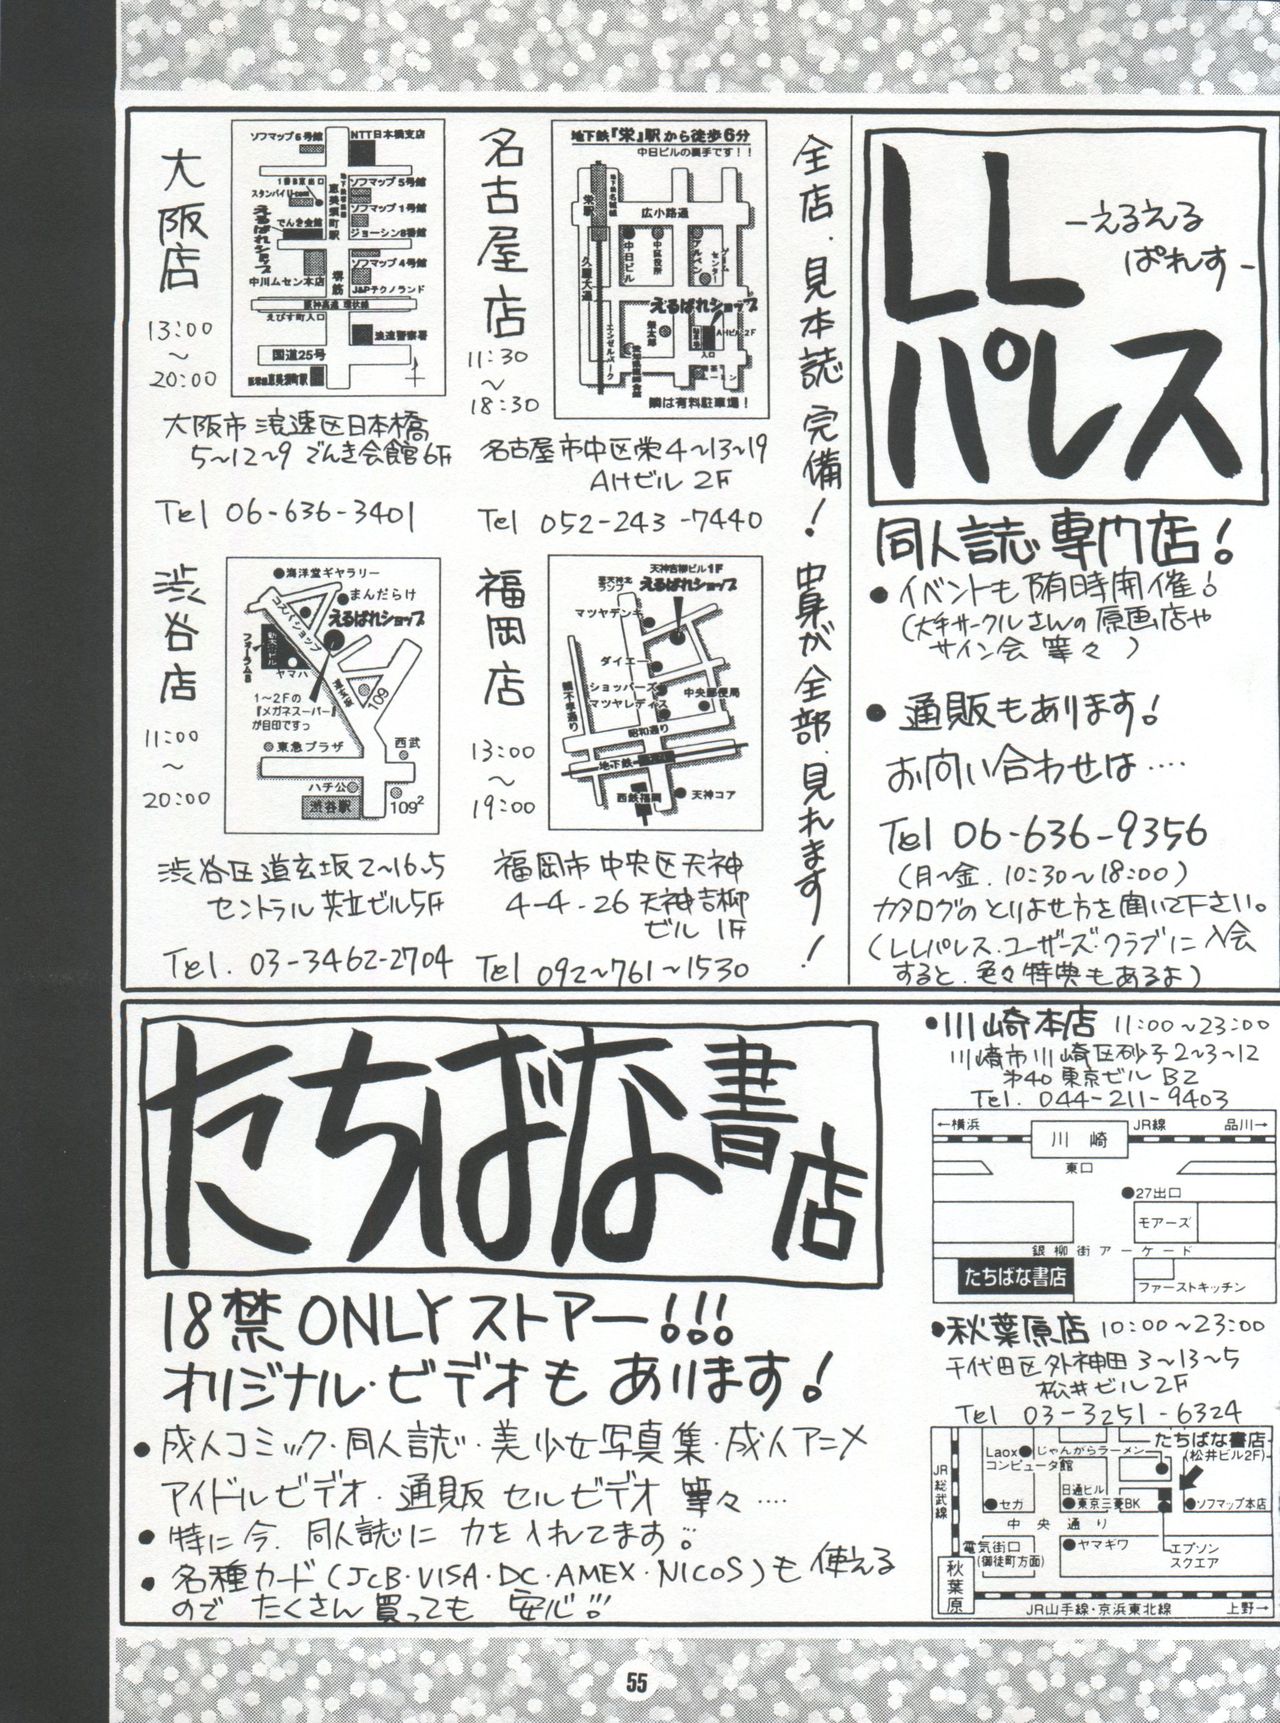 LL
パレス
-えるえる
ぱれす-
同人誌専門店!
・イベントも随時開催!
(大手サークルさんの原画店や
サイン会 等々)
・通販もあります!
お問い合わせは‥‥
Tel 06-636-9356
(月~金. 10:30~18:00)
カタログのとりよせ方を聞いて下さい。
(LLパレス・ユーザーズ・クラブに入会
すると、色々特典もあるよ)
全店・見本誌完備!中身が全部・見れます!
名古屋店
11:30
~
18:30
地下鉄『栄』駅から徒歩6分
中日ビルの裏手です!!
栄駅
広小路通
中日ビル
中区役所
アルペン
ゲーム
センター
久屋大通
えるぱれショップ
AHビル2F
入口
エンゼルパーク
隣は有料駐車場!
名古屋市中区栄4~13~19
AHビル 2F
Tel 052-243-7440
大阪店
13:00
~
20:00
ソフマップ6号館
NTT日本橋支店
1番B東出口
スタンバイU-com
でんき会館
えるぱれショップ
恵美須町駅
ソフマップ5号館
ソフマップ1号館
ジョーシン8番館
ソフマップ4号館
中川ムセン本店
堺筋
J&Pテクノランド
阪神高速 環状線
えびす町入口
浪速警察署
国道25号
恵美須町駅
大阪市浪速区日本橋
5~12~9 でんき会館6F
Tel 06-636-3401
福岡店
13:00
~
19:00
天神吉柳ビル1F
えるぱれショップ
マツヤデンキ
ダイエー
ショッパーズ
マツヤレディス
中央郵便局
親不孝通り
昭和通り
地下鉄
西鉄福岡
天神コア
福岡市中央区天神
4-4-26 天神吉柳
ビル 1F
Tel 092~761~1530
渋谷店
11:00
~
20:00
海洋堂ギャラリー
まんだらけ
コスパショップ
えるぱれショップ
フォーラム8
ヤマハ
1~2Fの
『メガネスーパー』
が目印ですっ
109
東急プラザ
西武
ハチ公
渋谷駅
109²
渋谷区道玄坂2~16~5
セントラル共立ビル5F
Tel. 03-3462-2704
たちばな書店
18禁ONLYストアー!!!
オリジナル・ビデオもあります!
・成人コミック・同人誌・美少女写真集・成人アニメ
アイドルビデオ・通販 セルビデオ 等々‥‥
・特に今、同人誌に力を入れてます
・各種カード(JCB・VISA・DC・AMEX・NICOS)も使える
のでたくさん買っても安心!!
・川崎本店 11:00~23:00
川崎市川崎区砂子2~3~12
第40 東京ビル B2
Tel. 044-211-9403
←横浜
川崎
JR線
品川→
東口
27出口
モアーズ
銀柳街アーケード
たちばな書店
ファーストキッチン
・秋葉原店 10:00~23:00
千代田区外神田3~13~5
松井ビル2F
Tel 03-3251-6324
たちばな書店
(松井ビル2F)
Laox
コンピュータ館
じゃんがらラーメン
JR総武線
日通ビル
セガ
東京三菱BK
ソフマップ本店
中央通り
電気街口
(御徒町方面)
ヤマギワ
エプソン
スクエア
秋葉原
JR山手線・京浜東北線
上野→
55